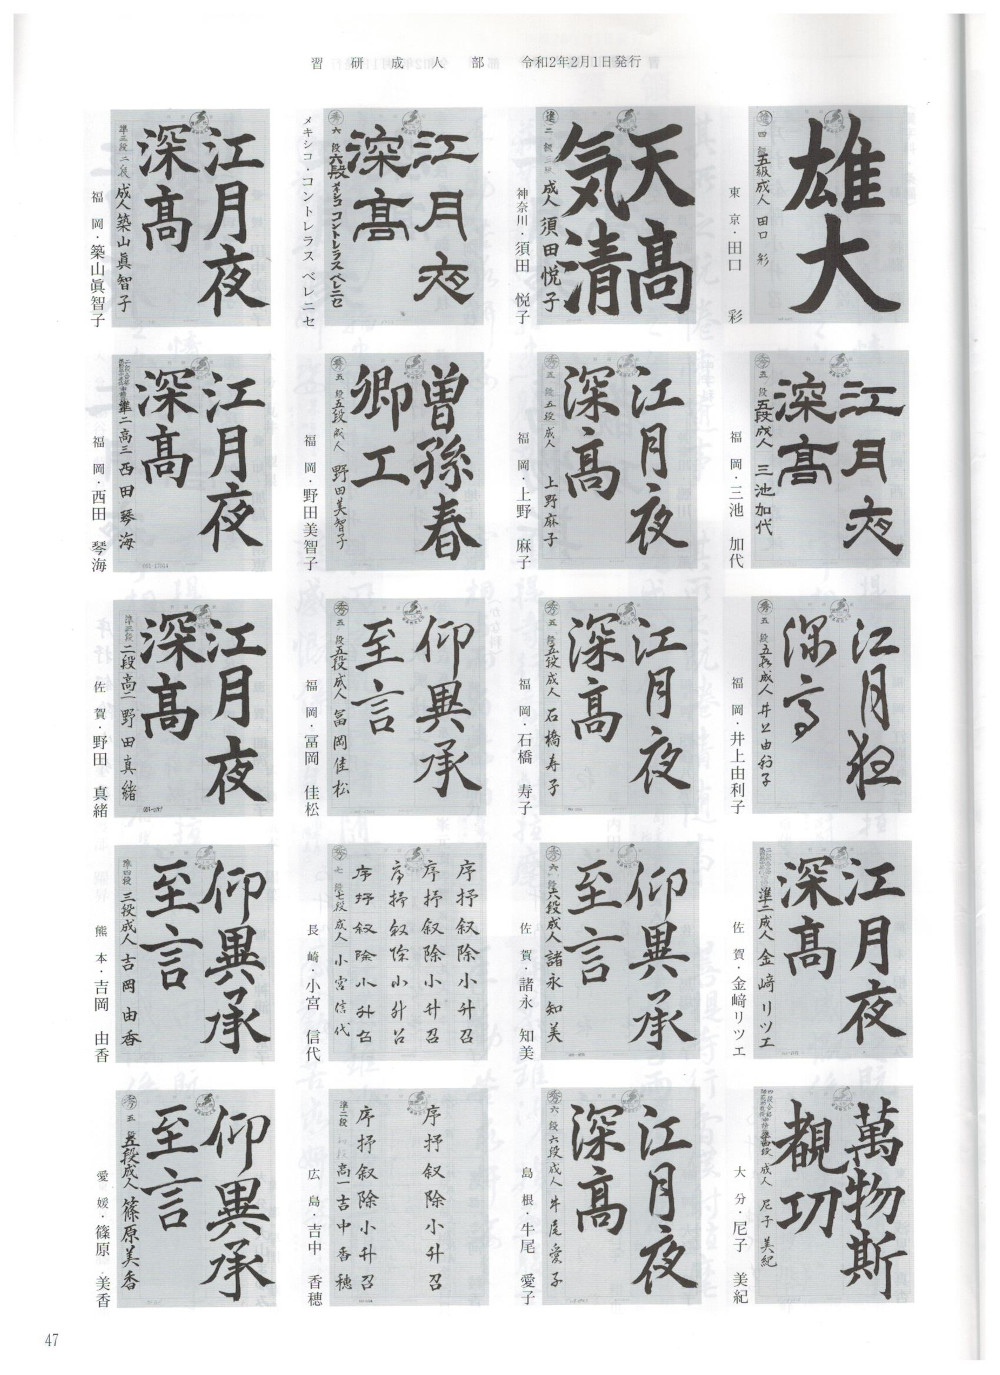 習研成人部 令和2年2月1日発行
雄大
五級成人 田口 彩
東京・田口 彩
天高
気清
成人 須田悦子
神奈川・須田 悦子
江月夜
深高
六段 メキシコ コントレラスベレニセ
メキシコ・コントレラス ベレニセ
江月夜
深髙
準三段 二段 成人 築山眞智子
福岡・築山眞智子
江月夜
深高
五段成人 三池加代
福岡・三池 加代
江月夜
深髙
五段 五段成人 上野麻子
福岡・上野 麻子
曽孫春
卿工
五段 五段成人 野田美智子
福岡・野田美智子
江月夜
深髙
準二高三 西田琴海
福岡・西田 琴海
江月夜
深高
五段 五段成人 井上由利子
福岡・井上由利子
江月夜
深髙
五段 五段成人 石橋寿子
福岡・石橋 寿子
仰異承
至言
五段 五段成人 冨岡佳松
福岡・冨岡 佳松
江月夜
深髙
準三段 二段 高一 野田真緒
佐賀・野田 真緒
江月夜
深髙
準二成人 金﨑リツエ
佐賀・金﨑リツエ
仰異承
至言
六段 六段成人 諸永知美
佐賀・諸永 知美
序抒叙除小升召
序抒叙除小升召
序抒叙除小升召
序抒叙除小升召
七段 七段 成人 小宮信代
長崎・小宮 信代
仰異承
至言
準四段 三段成人 吉岡由香
熊本・吉岡 由香
萬物斯
覩功
成人 尼子美紀
大分・尼子 美紀
江月夜
深髙
六段 六段成人 牛尾愛子
島根・牛尾 愛子
序抒叙除小升召
序抒叙除小升召
準二段 高一 吉中香穂
広島・吉中 香穂
仰異承
至言
五段 五段成人 篠原美香
愛媛・篠原 美香
47